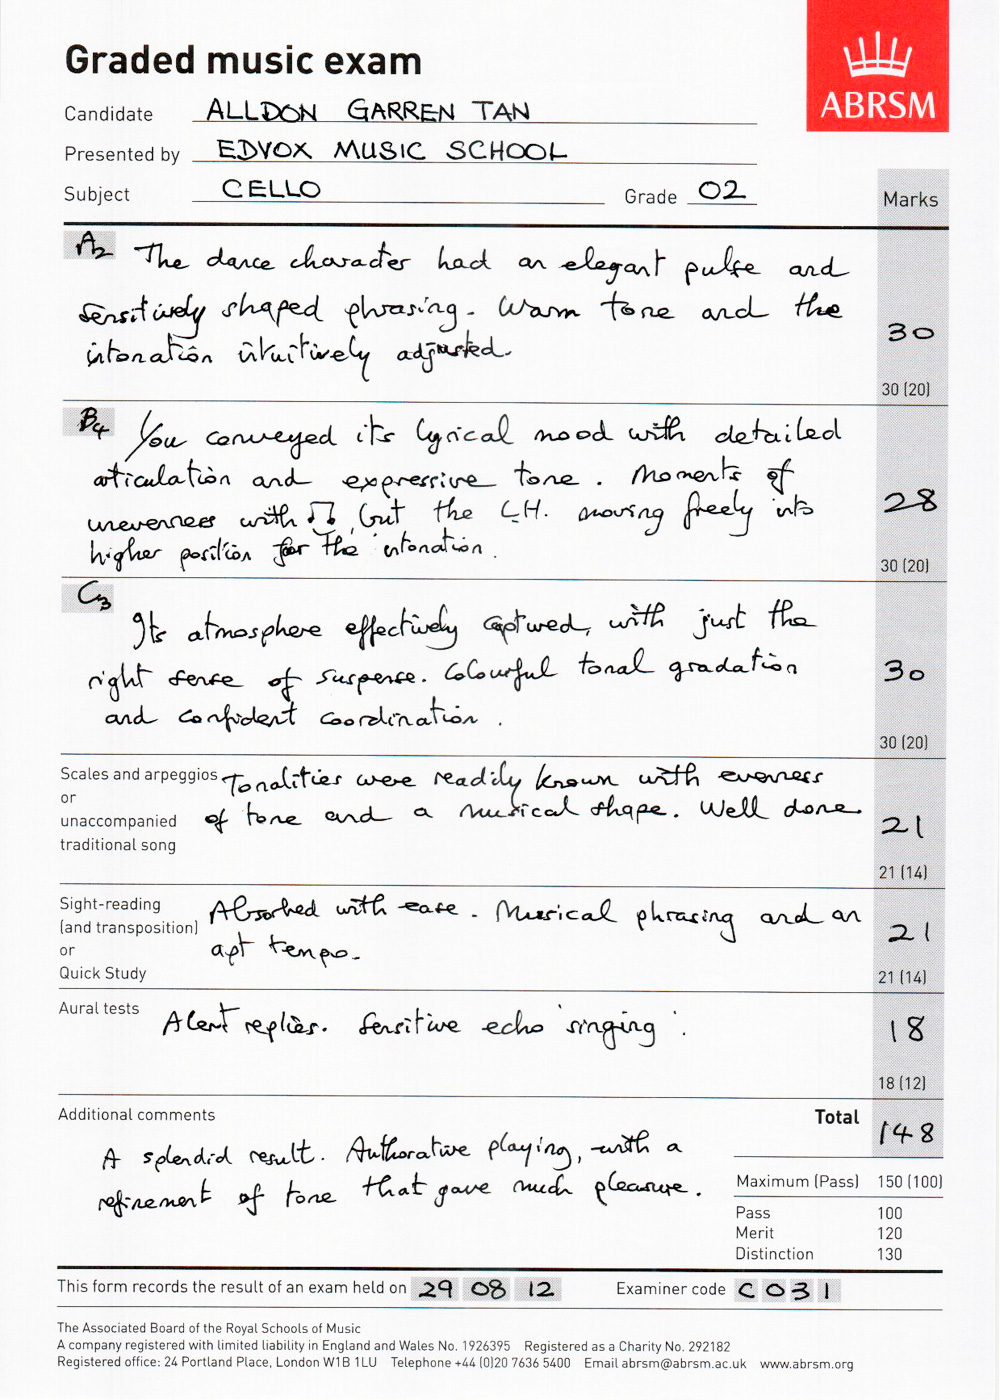 Graded music exam
ABRSM
Candidate ALLDON GARREN TAN
Presented by EDVOX MUSIC SCHOOL
Subject CELLO Grade 02
Marks
A2 The dance character had an elegant pulse and
sensitively shaped phrasing. Warm tone and the
intonation intuitively adjusted.
30
30 (20)
B4 You conveyed its lyrical mood with detailed
articulation and expressive tone. Moments of
unevenness with ♫, but the L.H. moving freely into
higher position for the intonation.
28
30 (20)
C3
Its atmosphere effectively captured, with just the
right sense of suspense. Colourful tonal gradation
and confident coordination.
30
30 (20)
Scales and arpeggios
or
unaccompanied
traditional song
Tonalities were readily known with evenness
of tone and a musical shape. Well done
21
21 (14)
Sight-reading
(and transposition)
or
Quick Study
Absorbed with ease. Musical phrasing and an
apt tempo.
21
21 (14)
Aural tests
Alert replies. Sensitive echo 'singing'.
18
18 (12)
Additional comments
A splendid result. Authorative playing, with a
refinement of tone that gave much pleasure.
Total 148
Maximum (Pass) 150 (100)
Pass 100
Merit 120
Distinction 130
This form records the result of an exam held on 29 08 12 Examiner code C 0 3 1
The Associated Board of the Royal Schools of Music
A company registered with limited liability in England and Wales No. 1926395 Registered as a Charity No. 292182
Registered office: 24 Portland Place, London W1B 1LU Telephone +44 (0)20 7636 5400 Email abrsm@abrsm.ac.uk www.abrsm.org